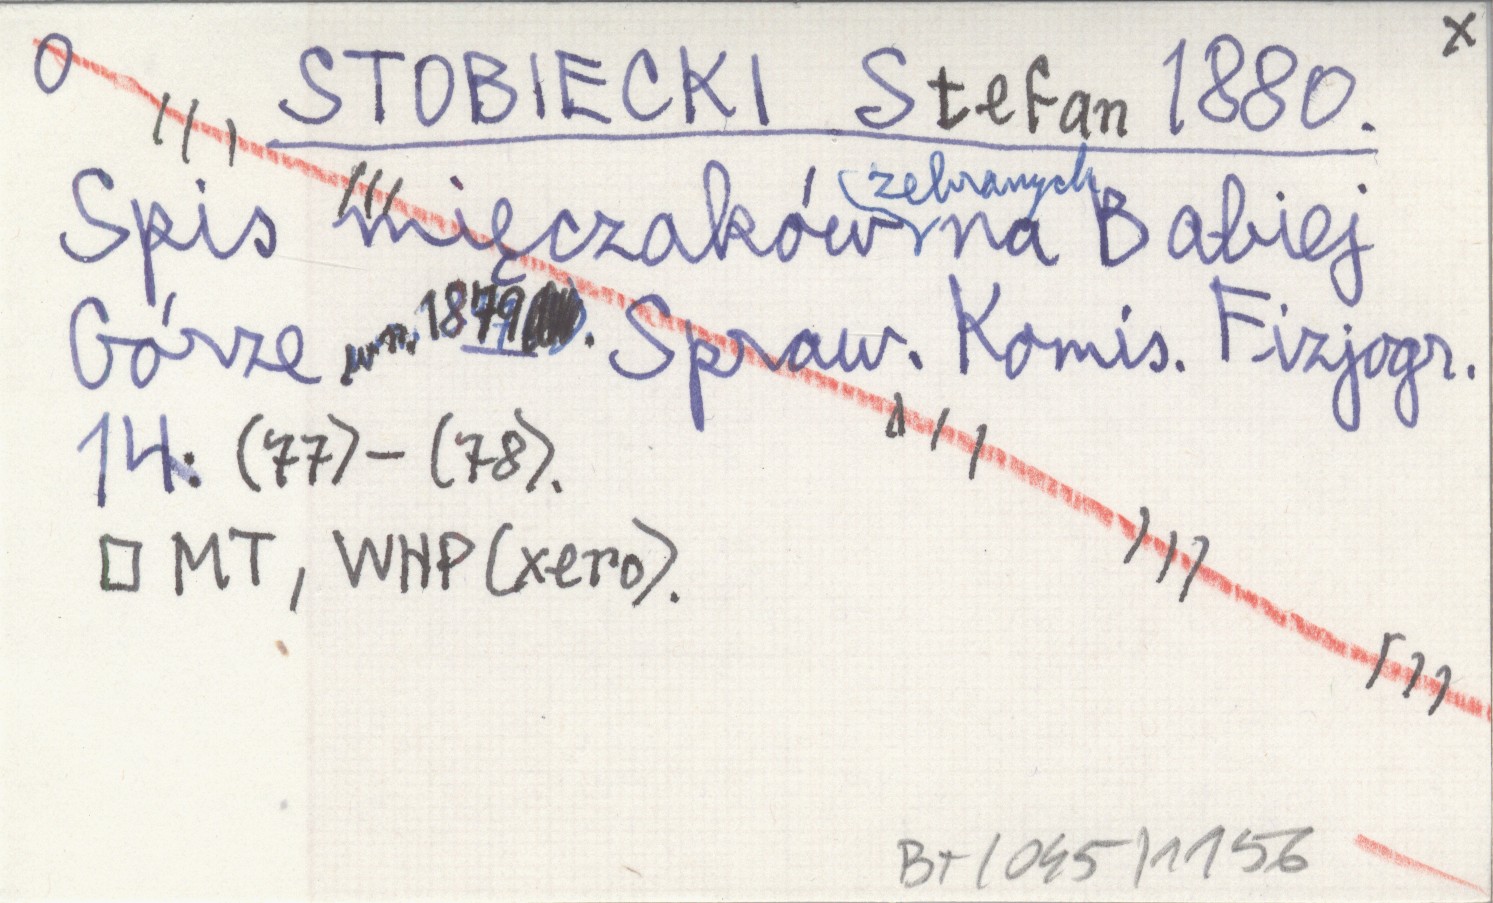 x
O STOBIECKI Stefan 1880.
Spis mięczaków zebranych na Babiej
Górze w r. 1879. Spraw. Komis. Fizjogr.
14: (77)-(78).
□ MT, WNP (xero).